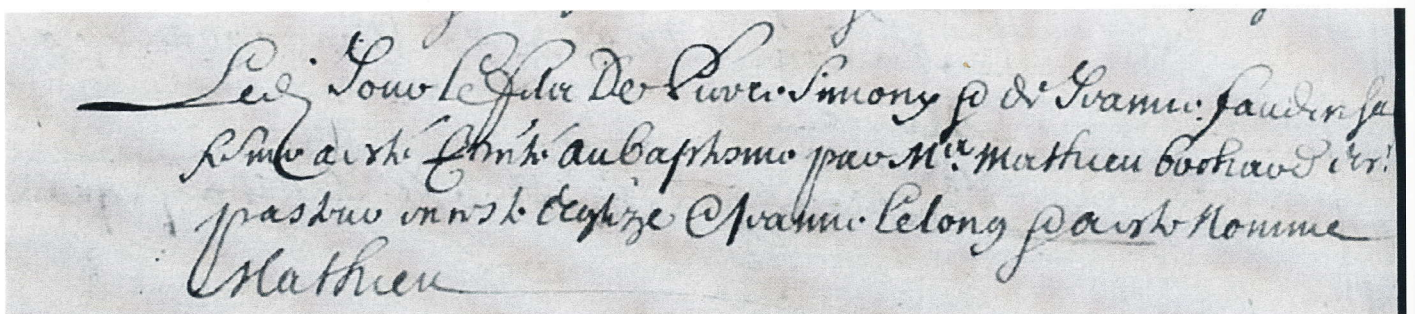 Led. Jour le filz De Pierre Simony & de Jeanne faudin sa
femme a esté presenté au Baptesme par Mr. Mathieu bochard
pasteur en ceste Eglize & Jeanne Lelong & a este Nomme
Mathieu